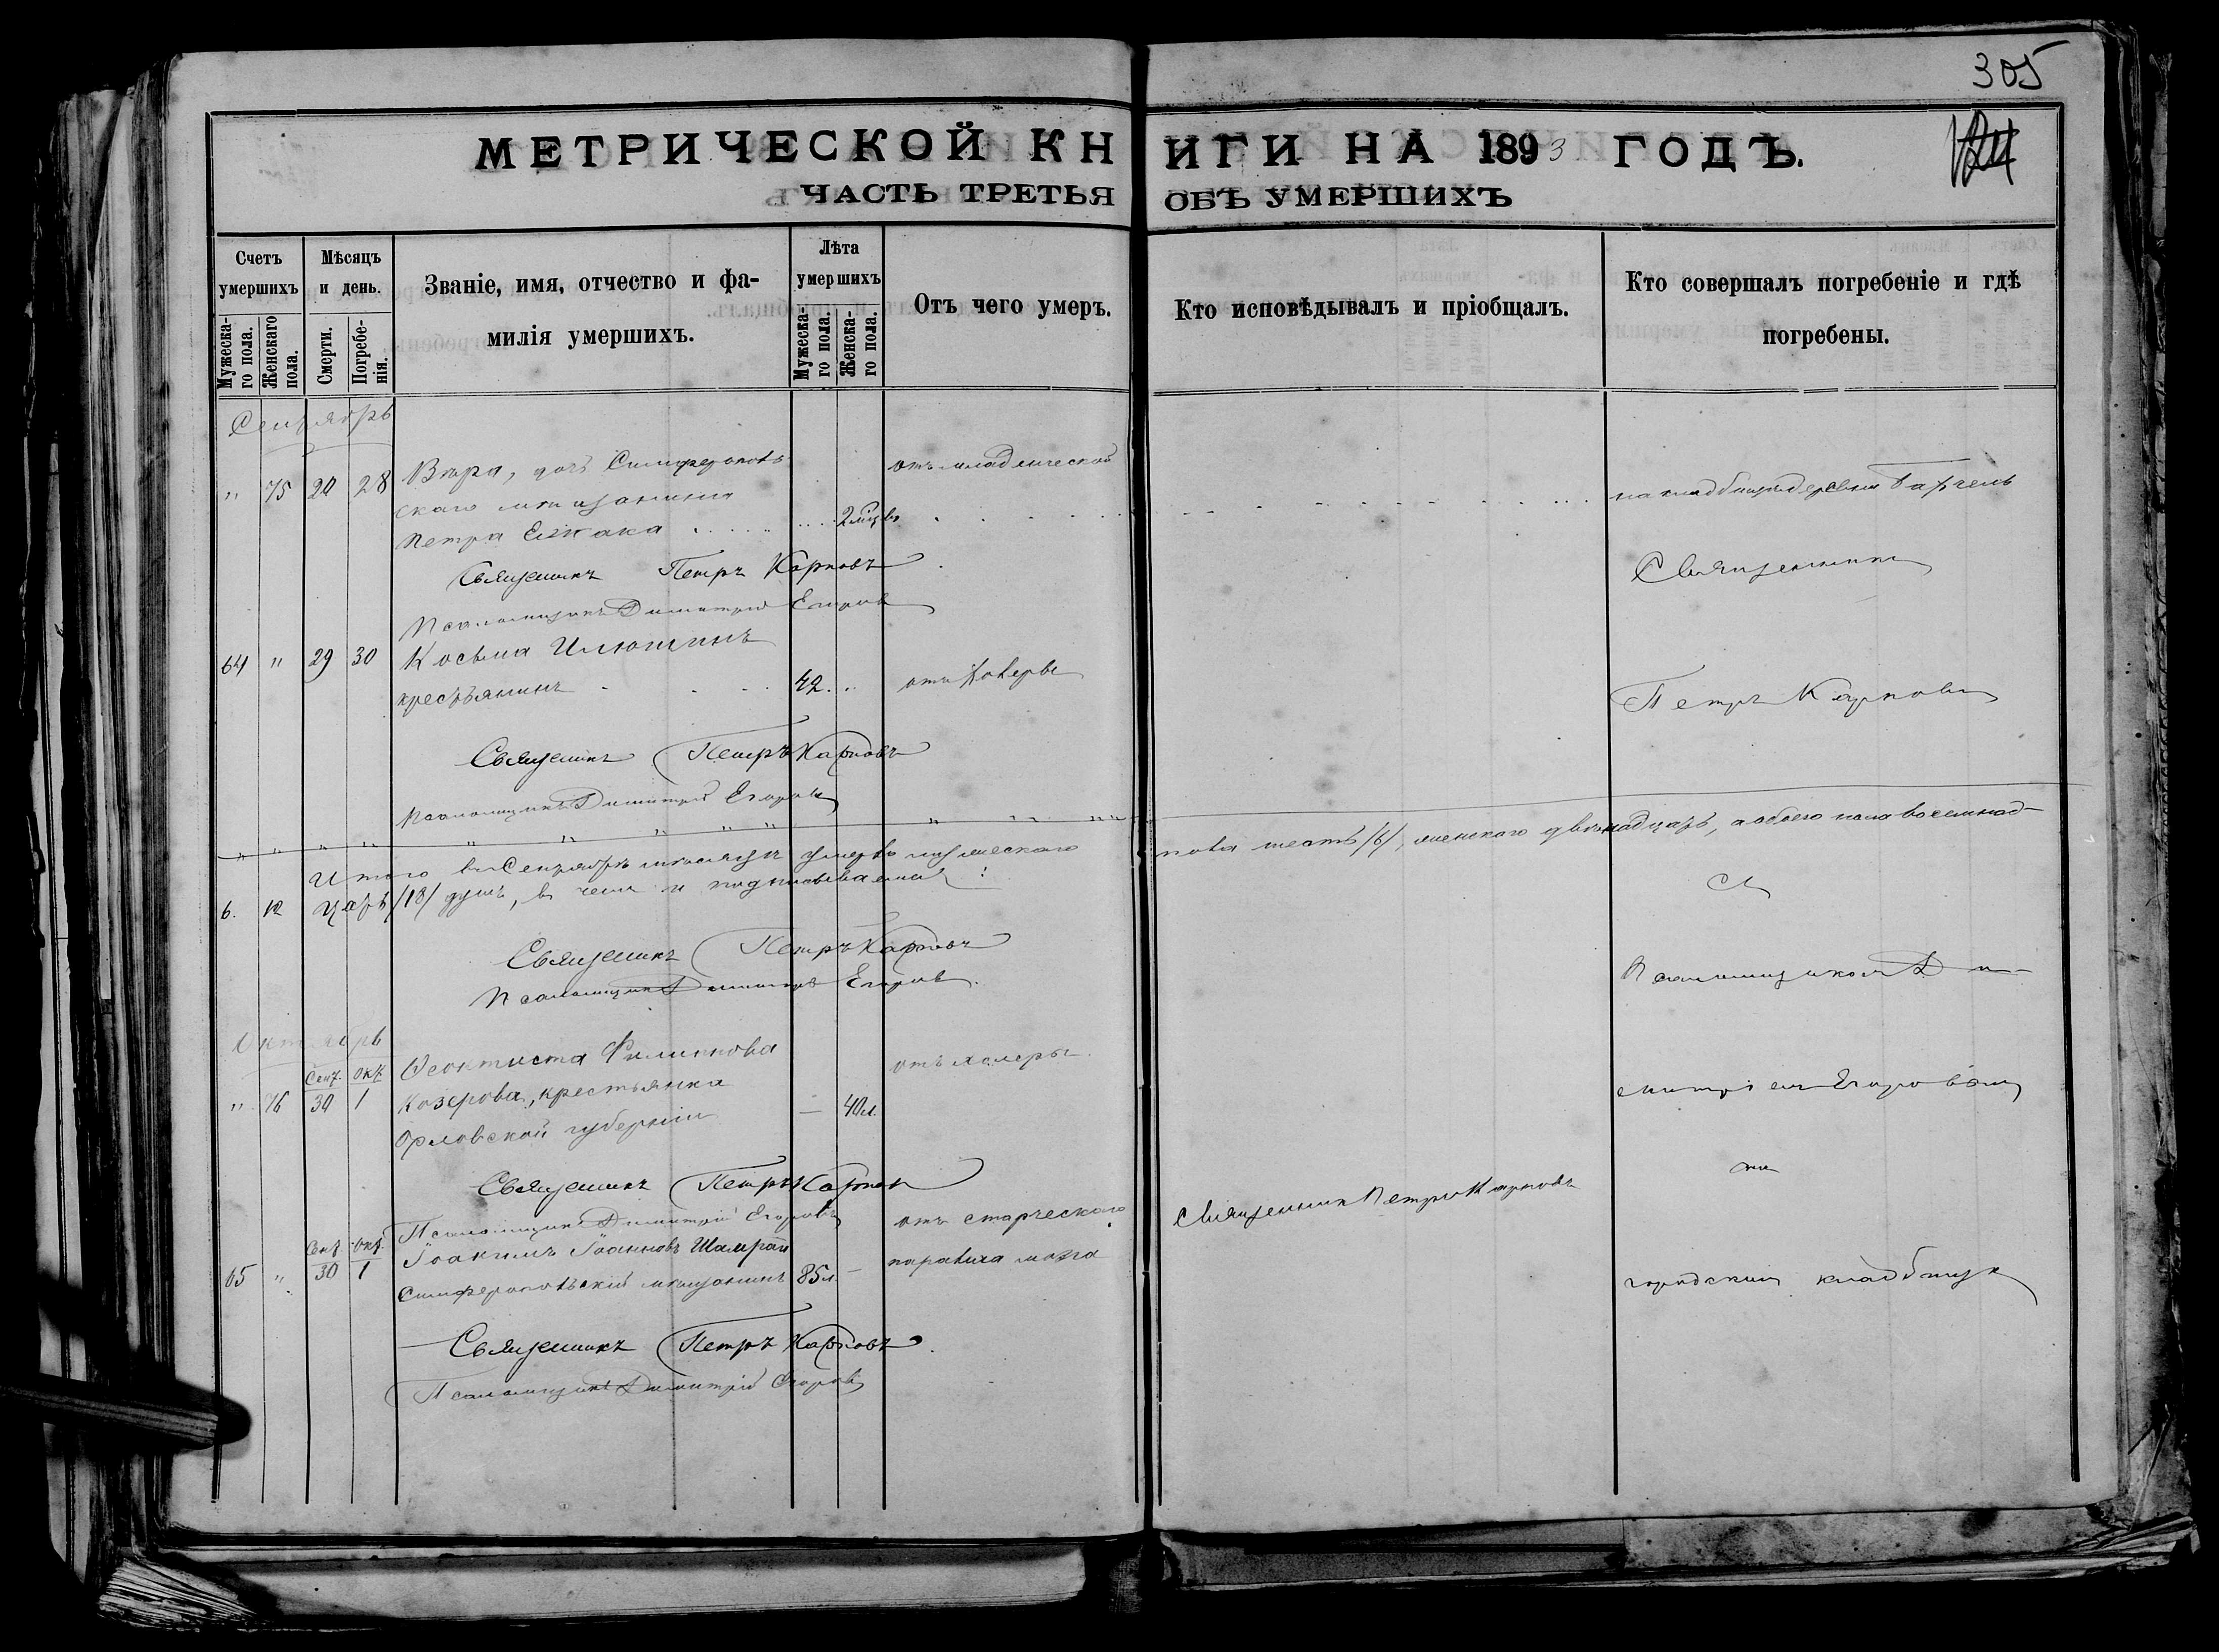 305
МЕТРИЧЕСКОЙ КНИГИ НА 1893 ГОДЪ.
ЧАСТЬ ТРЕТЬЯ ОБЪ УМЕРШИХЪ
Счетъ умершихъ
Мужескаго пола.
Женскаго пола.
Мѣсяцъ и день.
Смерти.
Погребенія.
Званіе, имя, отчество и фамилія умершихъ.
Лѣта умершихъ
Мужескаго пола.
Женскаго пола.
Отъ чего умеръ.
Кто исповѣдывалъ и пріобщалъ.
Кто совершалъ погребеніе и гдѣ погребены.
Сентябрь
" 75 28
Вѣра, дочь Симферополь-
скаго мѣщанина
Петра
отъ младенческой
на кладбищѣ деревни
Священникъ Петръ Карповъ
Псаломщикъ Димитрій Егоровъ
Священникъ
64 " 29 30
Косьма Илюшинъ
крестьянинъ 42
отъ холеры
Петръ Карповъ
Священникъ Петръ Карповъ
Псаломщикъ Димитрій Егоровъ
Итого въ Сентябрѣ мѣсяцѣ умерло мужескаго
пола шесть /6/, женскаго двѣнадцать, а обоего пола восемнад-
6. 12 цать /18/ душъ, въ чемъ и подписываемся:
съ
Священникъ Петръ Карповъ
Псаломщикъ Димитрій Егоровъ.
Псаломщикомъ Ди-
Октябрь
Сент. Окт.
" 76 30 1
Ѳеоктиста Филиппова
Козерова, крестьянка
Орловской губерніи
— 40 л.
отъ холеры.
митріемъ Егоровымъ
Священникъ Петръ Карповъ
Псаломщикъ Димитрій Егоровъ
на
Сент. Окт.
65 " 30 1
Іоакимъ Іоанновъ Шамрай
Симферопольскій мѣщанинъ 85 л. —
отъ старческаго
паралича мозга
Священникъ Петръ Карповъ
городскомъ кладбищѣ
Священникъ Петръ Карповъ.
Псаломщикъ Димитрій Егоровъ